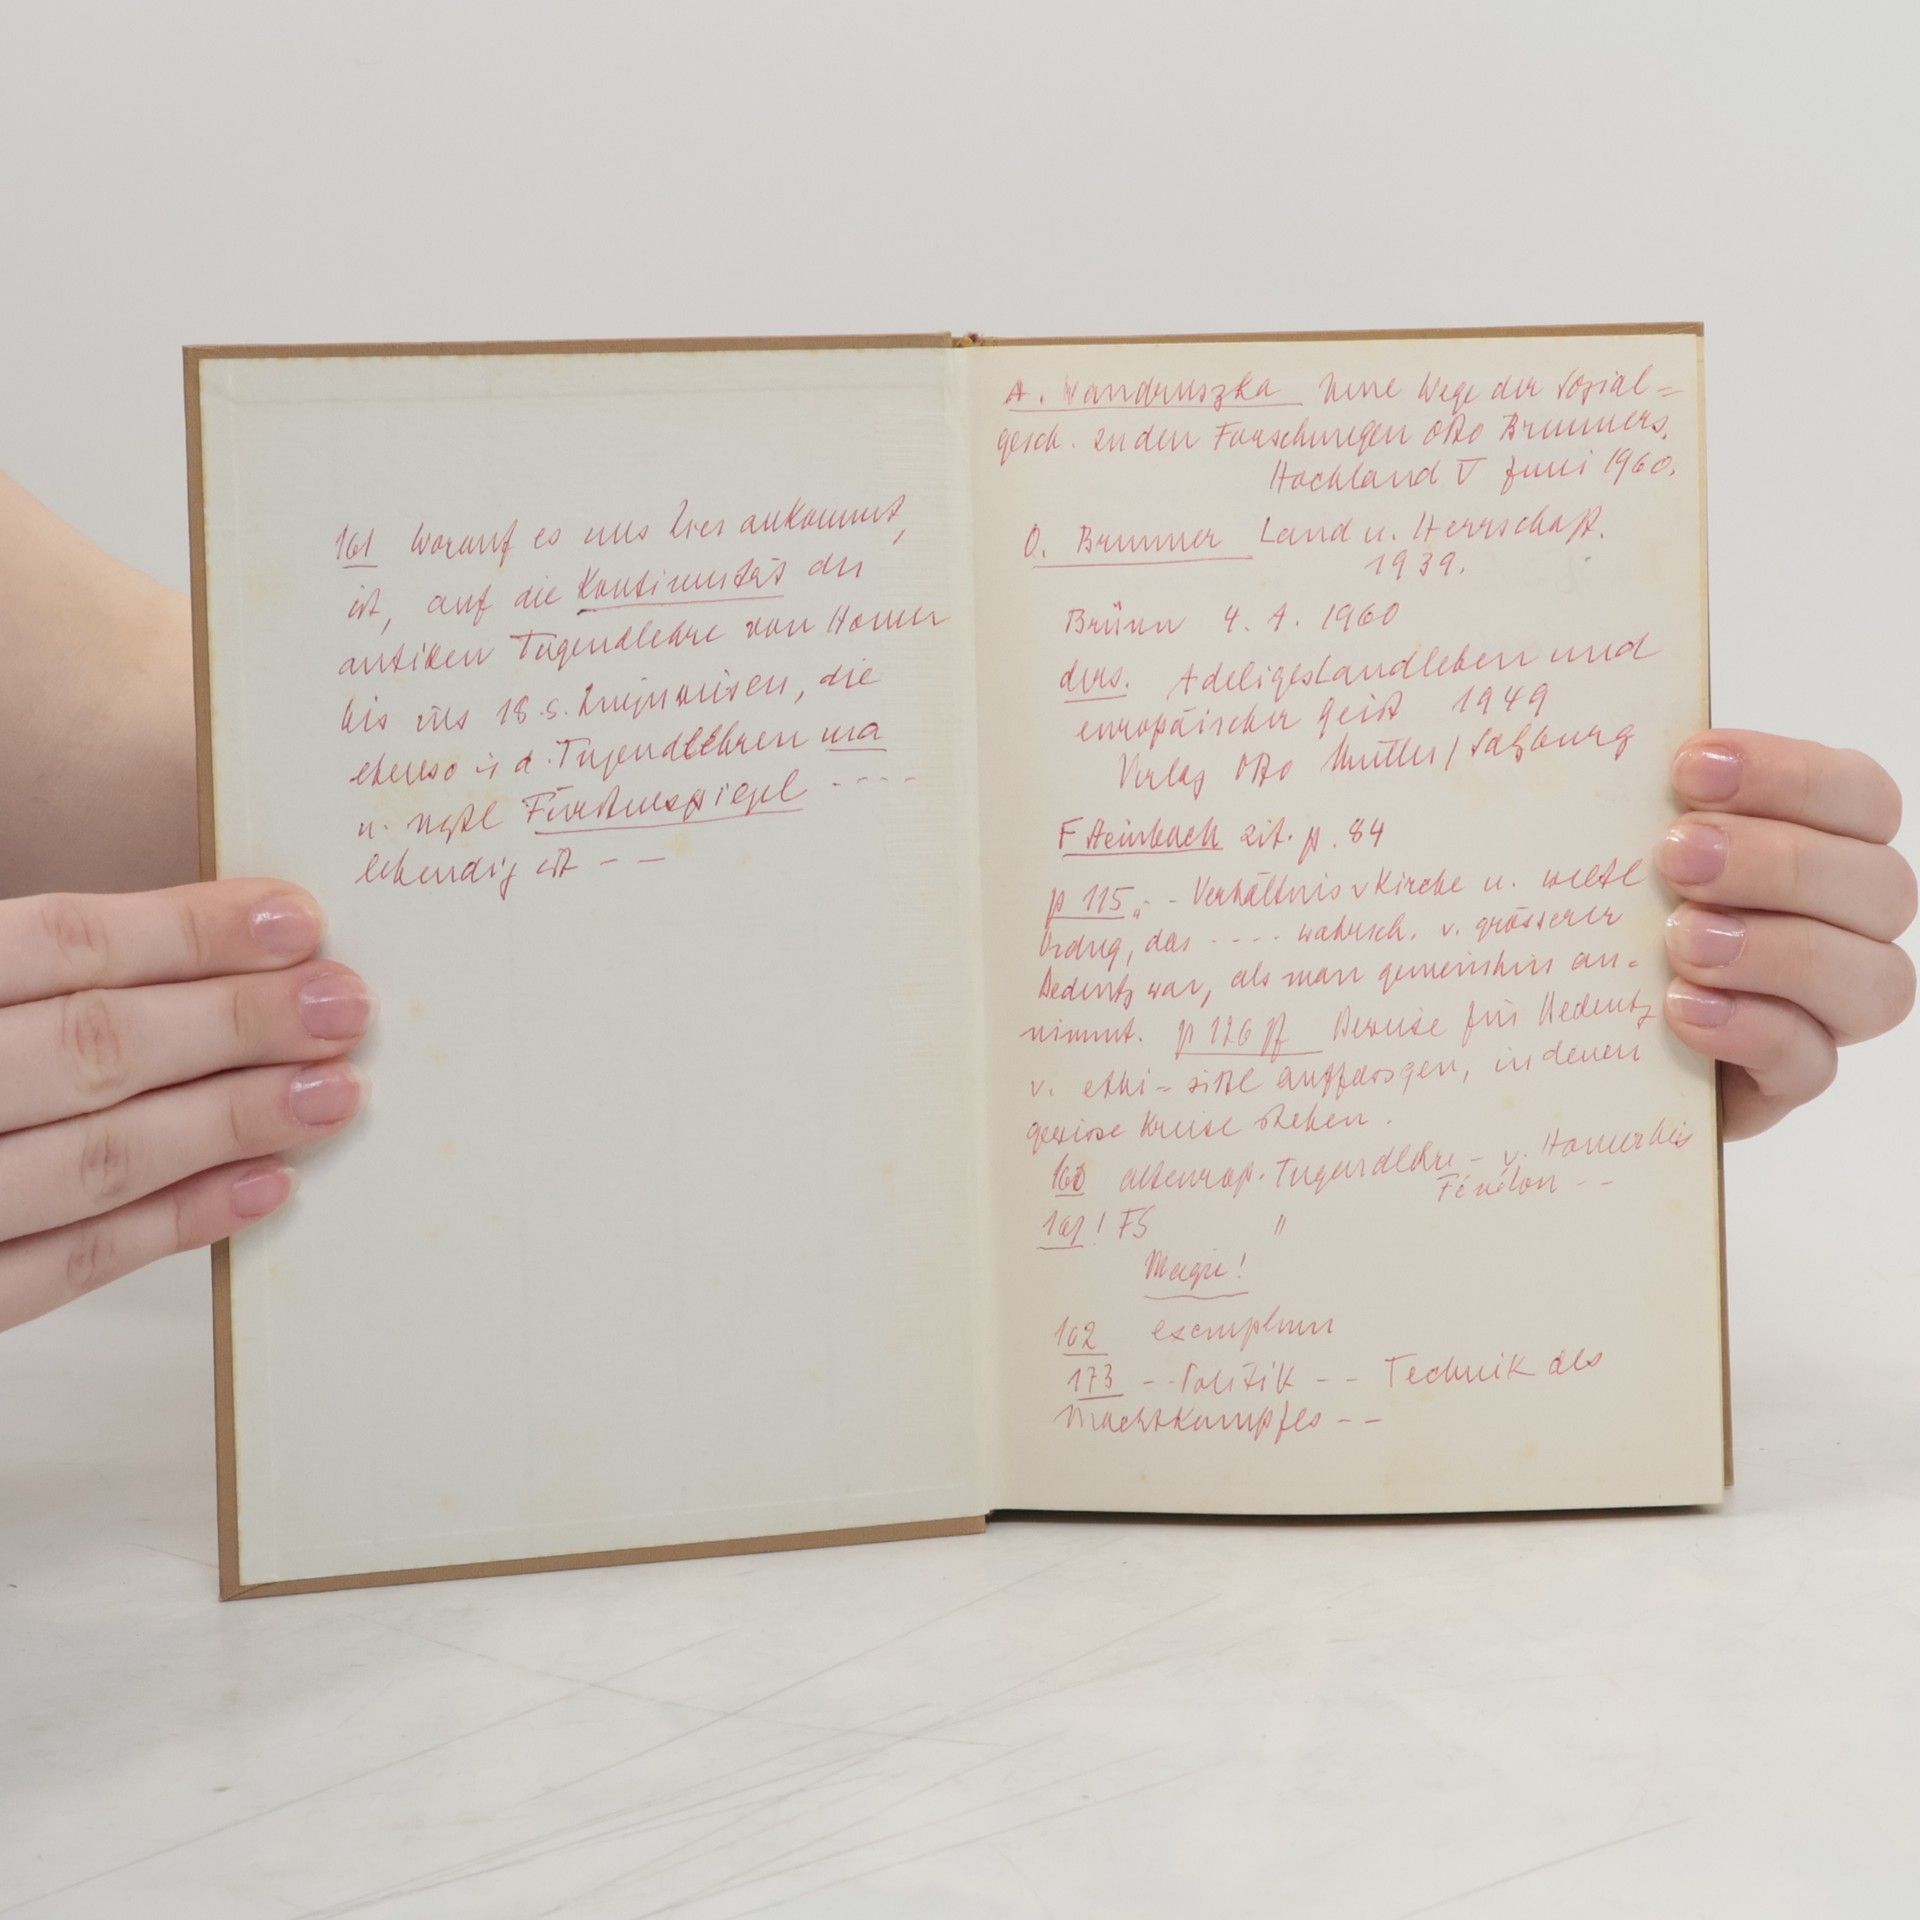 161 Worauf es uns hier ankommt,
ist, auf die Kontinuität der
antiken Tugendlehre von Homer
bis ins 18. s. hinzuweisen, die
ebenso i d. Tugendlehren ma
u. Fürstenspiegel ----
lebendig ist --
A. Wandruszka Neue Wege der Sozial=
gesch. zu den Forschungen Otto Brunners.
Hochland V Juni 1960.
O. Brunner Land u. Herrschaft.
1939.
Brünn 4. A. 1960
ders. Adeliges Landleben und
europäischer Geist 1949
Verlag Otto Müller / Salzburg
F Steinbach zit. p. 84
p 115 „-- Verhältnis v Kirche u. weltl
Ordng, das ---- wahrsch. v. grösserer
Bedeutg war, als man gemeinhin an=
nimmt. p 126 ff Beweise für Bedeutg
v. ethi= sittl auffassgen, in denen
Kreise stehen.
160 alteurop. Tugendlehre - v. Homer bis
Fénélon --
161! FS "
Magie!
162 exemplum
173 -- Politik -- Technik des
Machtkampfes --